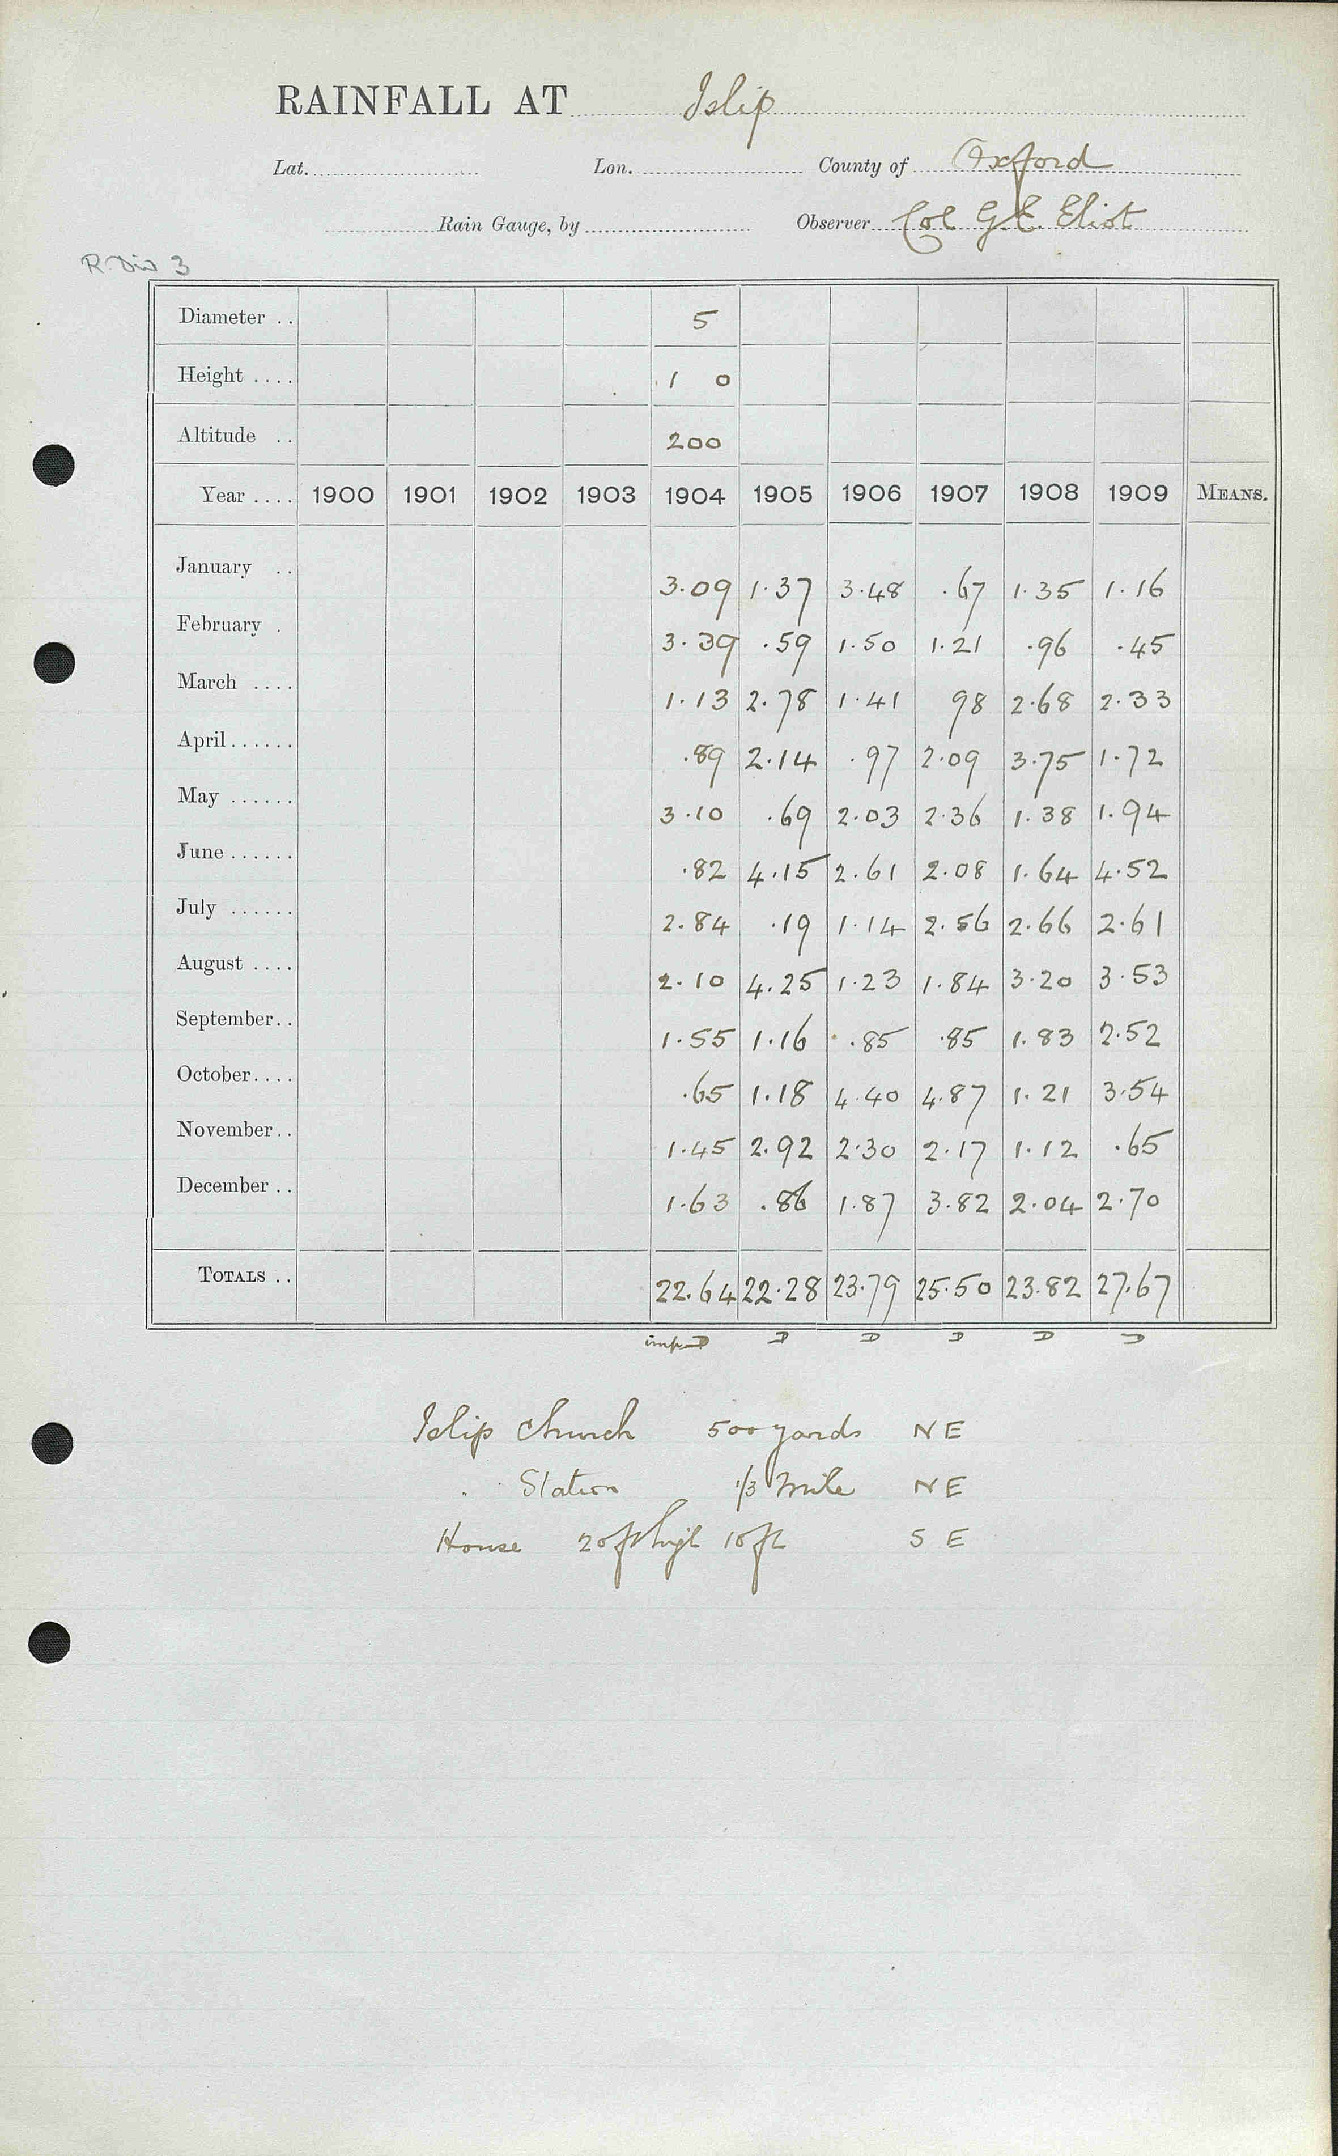 RAINFALL AT Islip
Lat. Lon. County of Oxford
Rain Gauge, by Observer Col G.E. Eliot
R. Div 3
Diameter .. 5
Height .... 1 0
Altitude .. 200
Year .... 1900 1901 1902 1903 1904 1905 1906 1907 1908 1909 MEANS.
January .. 3.09 1.37 3.48 .67 1.35 1.16
February . 3.39 .59 1.50 1.21 .96 .45
March .... 1.13 2.78 1.41 98 2.68 2.33
April...... .89 2.14 .97 2.09 3.75 1.72
May ...... 3.10 .69 2.03 2.36 1.38 1.94
June ...... .82 4.15 2.61 2.08 1.64 4.52
July ...... 2.84 .19 1.14 2.56 2.66 2.61
August .... 2.10 4.25 1.23 1.84 3.20 3.53
September.. 1.55 1.16 .85 .85 1.83 2.52
October.... .65 1.18 4.40 4.87 1.21 3.54
November.. 1.45 2.92 2.30 2.17 1.12 .65
December .. 1.63 .86 1.87 3.82 2.04 2.70
TOTALS .. 22.64 22.28 23.79 25.50 23.82 27.67
D D D D D
Islip Church 500 yards NE
Station 1/3 mile NE
House 20ft high 10ft S E